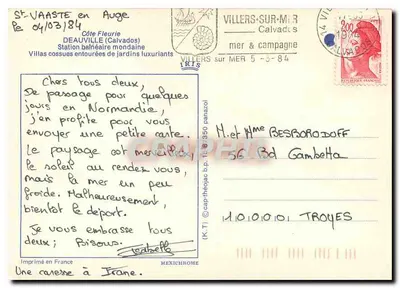 St-VAASTE en Auge
le 04/03/84
Côte Fleurie
DEAUVILLE (Calvados)
Station balnéaire mondaine
Villas cossues entourées de jardins luxuriants
IRIS
VILLERS-SUR-MER
Calvados
mer & campagne
VILLERS sur MER 5-3-84
2,00
Chers tous deux,
De passage pour quelques
jours en Normandie,
j'en profite pour vous
envoyer une petite carte.
Le paysage est merveilleux,
le soleil au rendez vous,
mais la mer un peu
froide. Malheureusement,
bientôt le départ.
Je vous embrasse tous
deux; Bisous.
Isabelle
(K.T) © cap-théojac b.p. 16 87350 panazol
M. et Mme BESBORODOFF
56 Bd Gambetta
10000 TROYES
Imprimé en France
MEXICHROME
Une caresse à Irane.